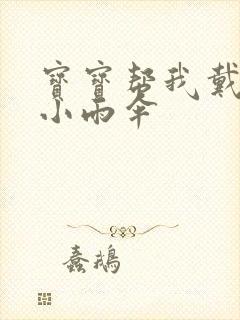 寶寶帮我戴
小雨伞
蠢鵝